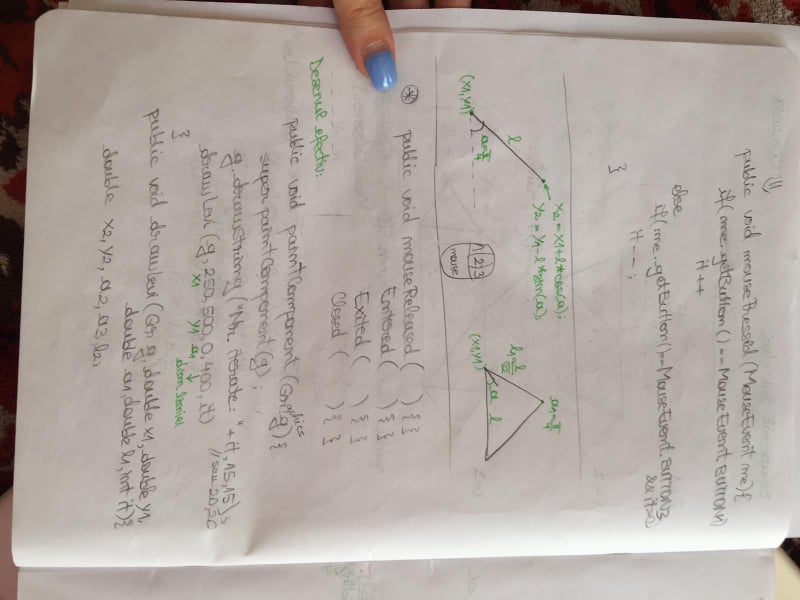 public void mousePressed (MouseEvent me){
if( me.getButton () == MouseEvent.BUTTON1)
it ++
else
if( me.getButton()==MouseEvent.BUTTON3
&& it>0)
it -- ;
}
x2 = x1+l*cos(a);
y2 = y1-l*sin(a);
l
a=π/4
(x1,y1)
1 2 3
mouse
a1=π/4
l1=l/√2
a l
(x1,y1)
* public void mouseReleased ( ) { }
Entered ( ) { }
Exited ( ) { }
Closed ( ) { }
Desenul efectiv:
public void paintComponent (Graphics g){
super.paintComponent(g);
g.drawString ("Nr. iterate: "+it, 15,15);
// sau 20,20
drawLevi (g, 250, 500, 0, 400, it)
x1 y1 a1 dim. liniei
}
public void drawLevi (Gr g, double x1, double y1,
double a1, double l1, int it){
double x2, y2, a2, a3, l2;